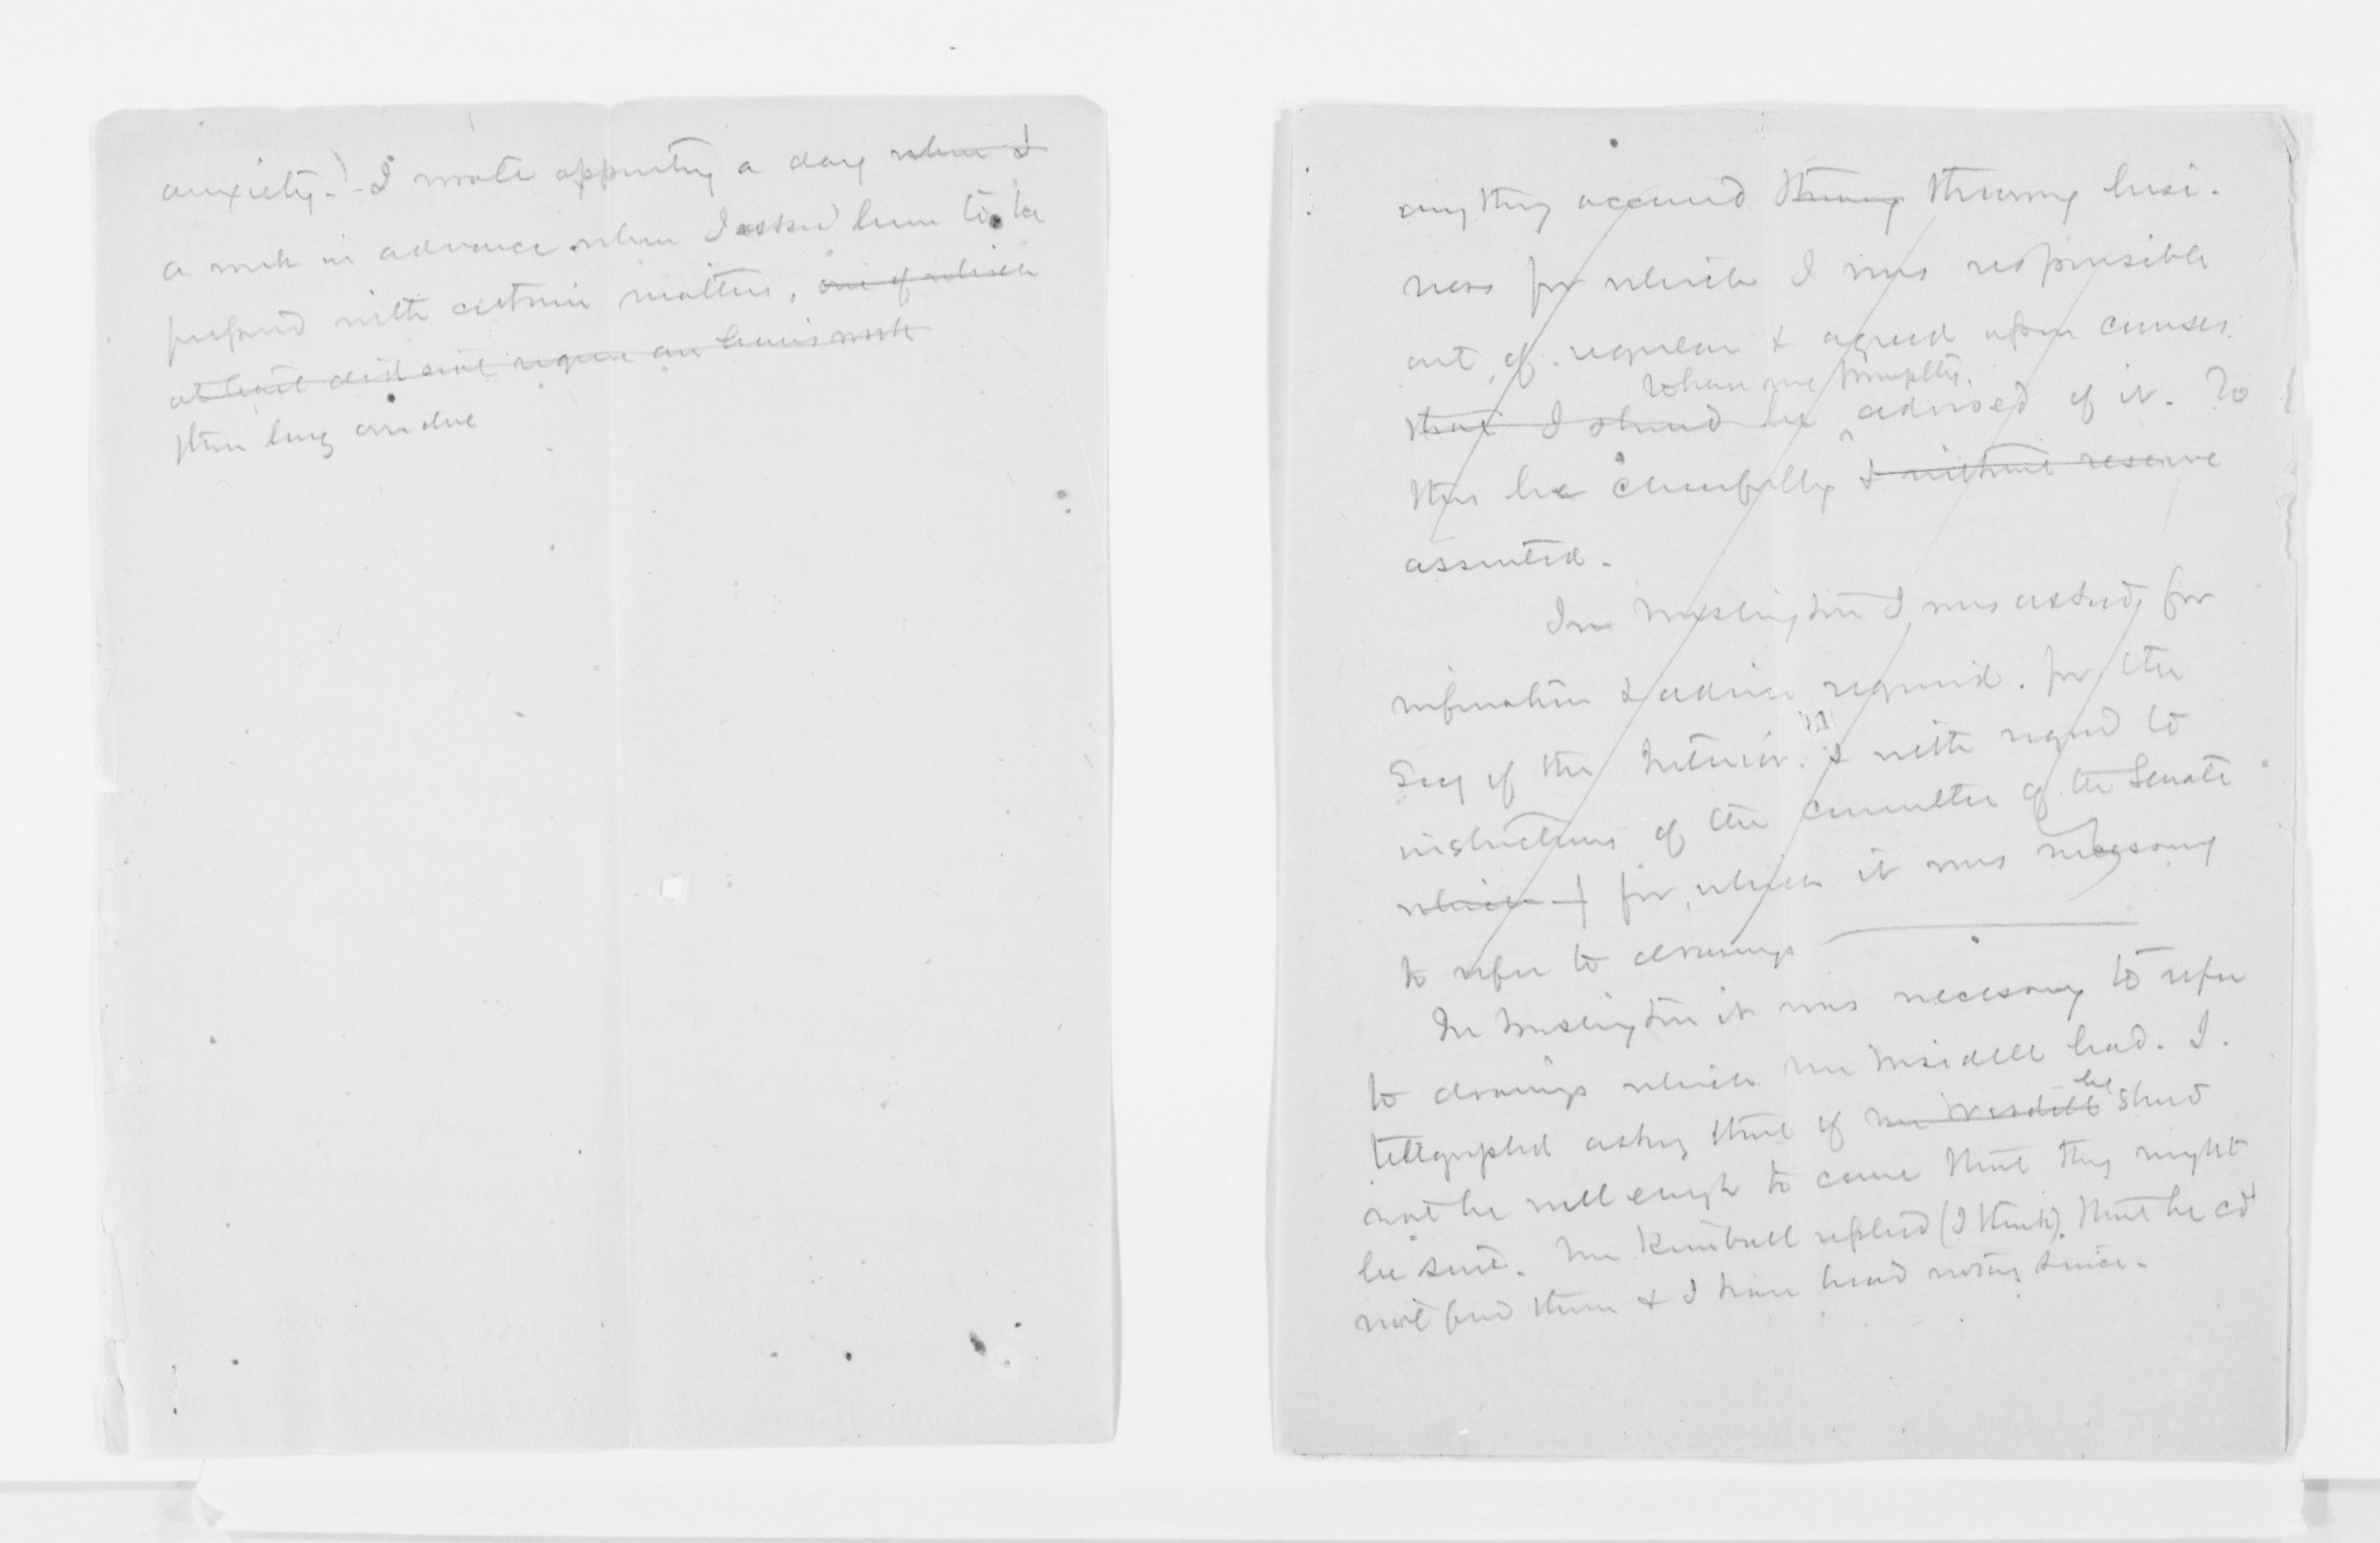 anxiety.) I wrote appointing a day when I
a week in advance when I asked him to be
prepared with certain matters, one of which
at least did not require an hour's work
then long overdue
any thing occurred throwing busi-
ness for which I was responsible
out of regular & agreed upon courses.
that I should be to have me promptly advised of it. To
this he cheerfully & without reserve
assented.
In Washington I was asked for
information & advice required for the
Secy of the Interior. & with regard to
instructions of the committee of the Senate
which for which it was necessary
to refer to drawings
In Washington it was necessary to refer
to drawings which Mr Wisedell had. I
telegraphed asking that if Mr Wisedell he should
not be well enough to come that they might
be sent. Mr Kimball replied (I think) that he cd
not find them & I have heard nothing since.